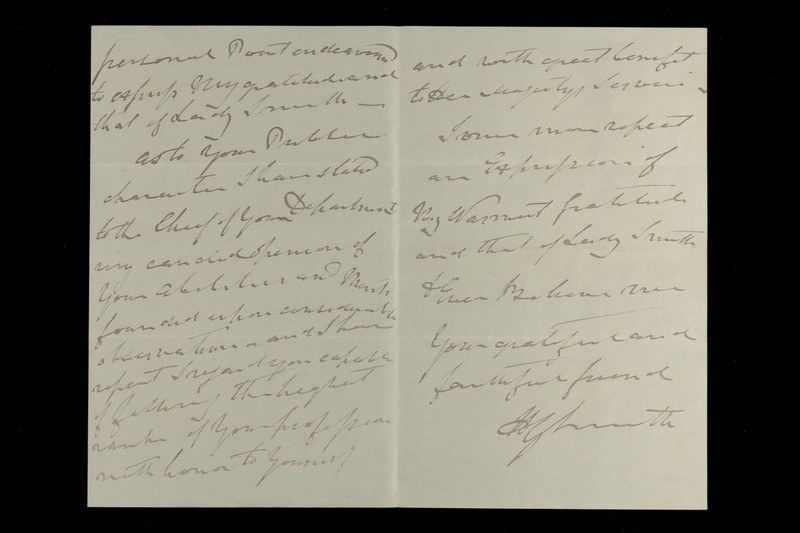 personal I but endeavoured
to express my gratitude and
that of Lady Smith —
as to your Public
character I have stated
to the Chief of your Department
my candid opinion of
your abilities and Merits
founded upon considerable
observation and I here
repeat I regard you capable
of filling the highest
ranks of your profession
with honor to yourself
and with great benefit
to Her Majesty's Service —
I once more repeat
an Expression of
My Warmest Gratitude
and that of Lady Smith
& Ever Believe me
Your grateful and
faithful friend
HG Smith